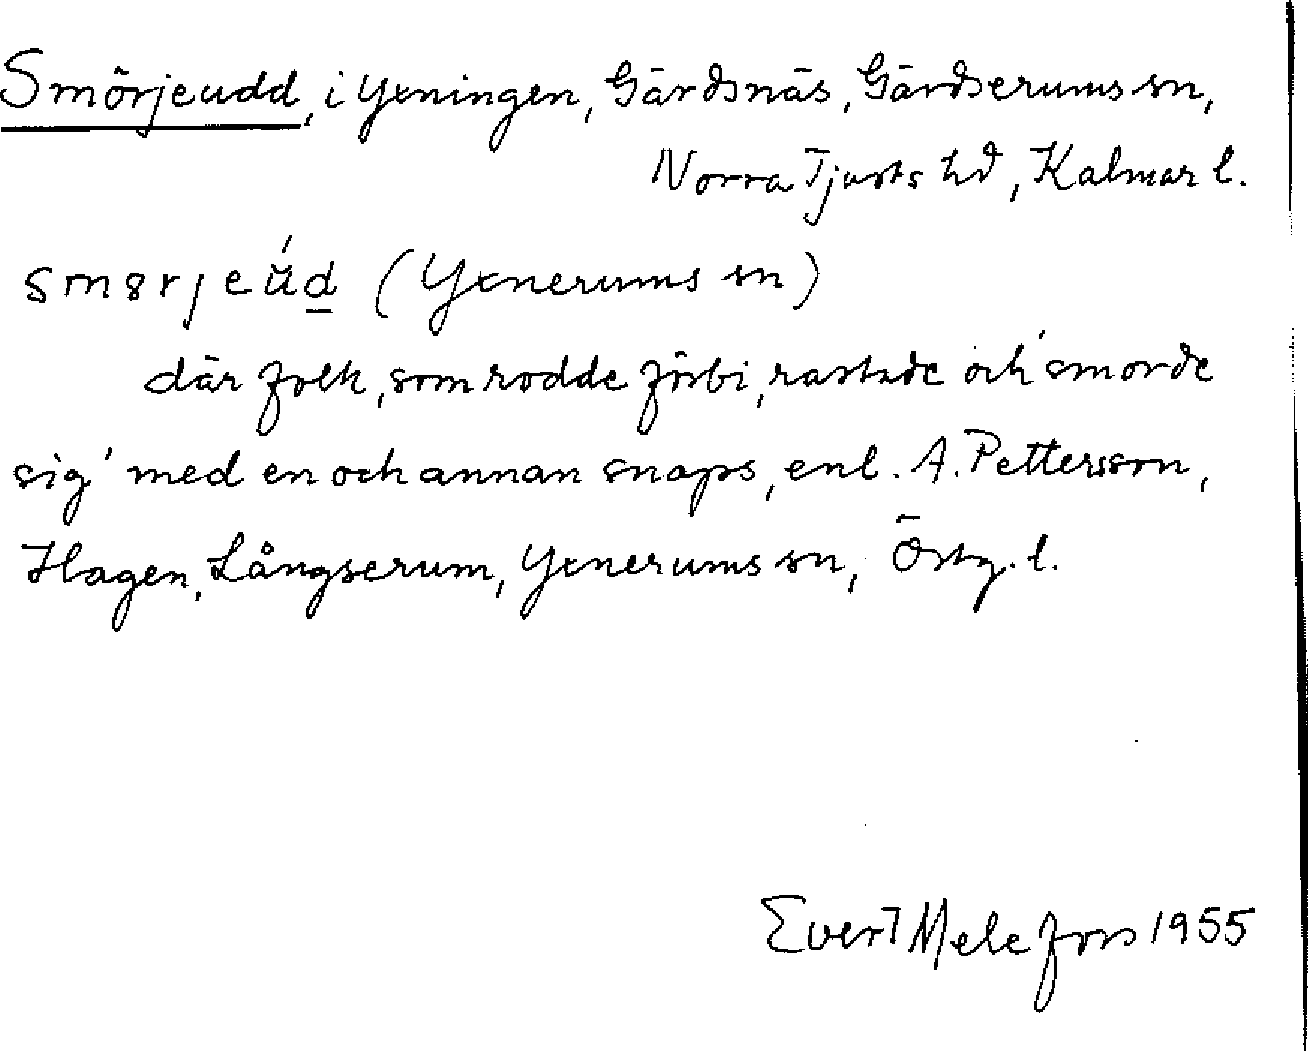 Smörjeudd, i Yxningen, Gärdsnäs, Gärdserums sn,
Norra Tjusts hd, Kalmar l.
smɜrjeúd (Yxnerums sn)
där folk, som rodde förbi, rastade och 'smorde
sig' med en och annan snaps, enl. A. Pettersson,
Hagen, Långserum, Yxnerums sn, Östg. l.
Evert Melefors 1955